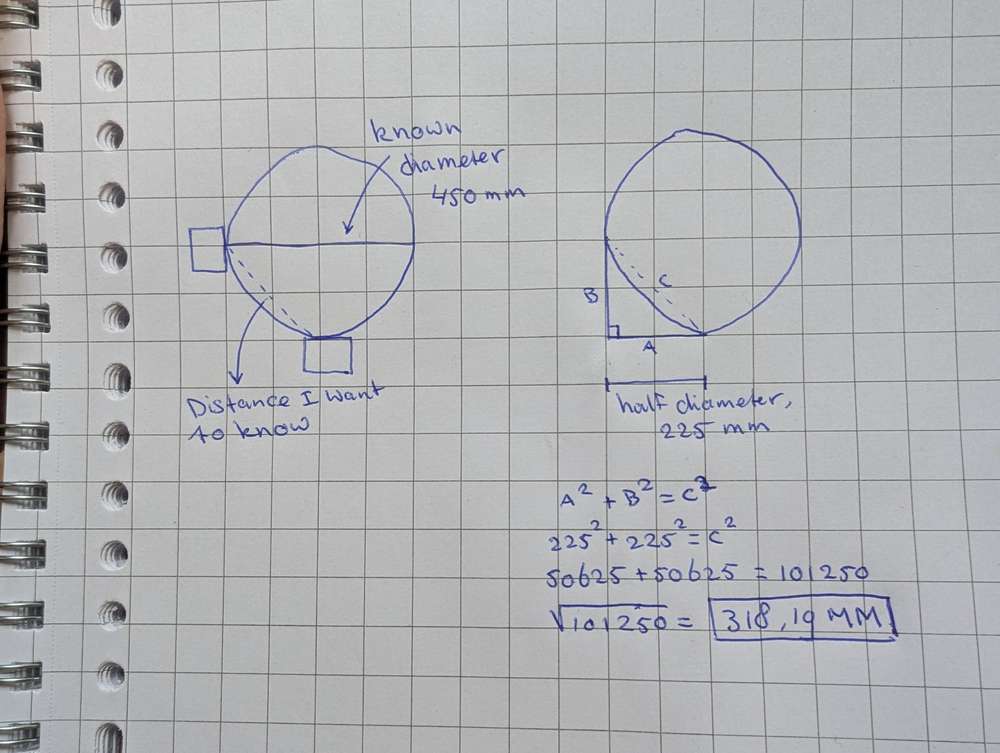 known
diameter
450 mm
Distance I want
to know
B
C
A
half diameter,
225 mm
A² + B² = C²
225² + 225² = C²
50625 + 50625 = 101250
√101250 = 318,19 MM